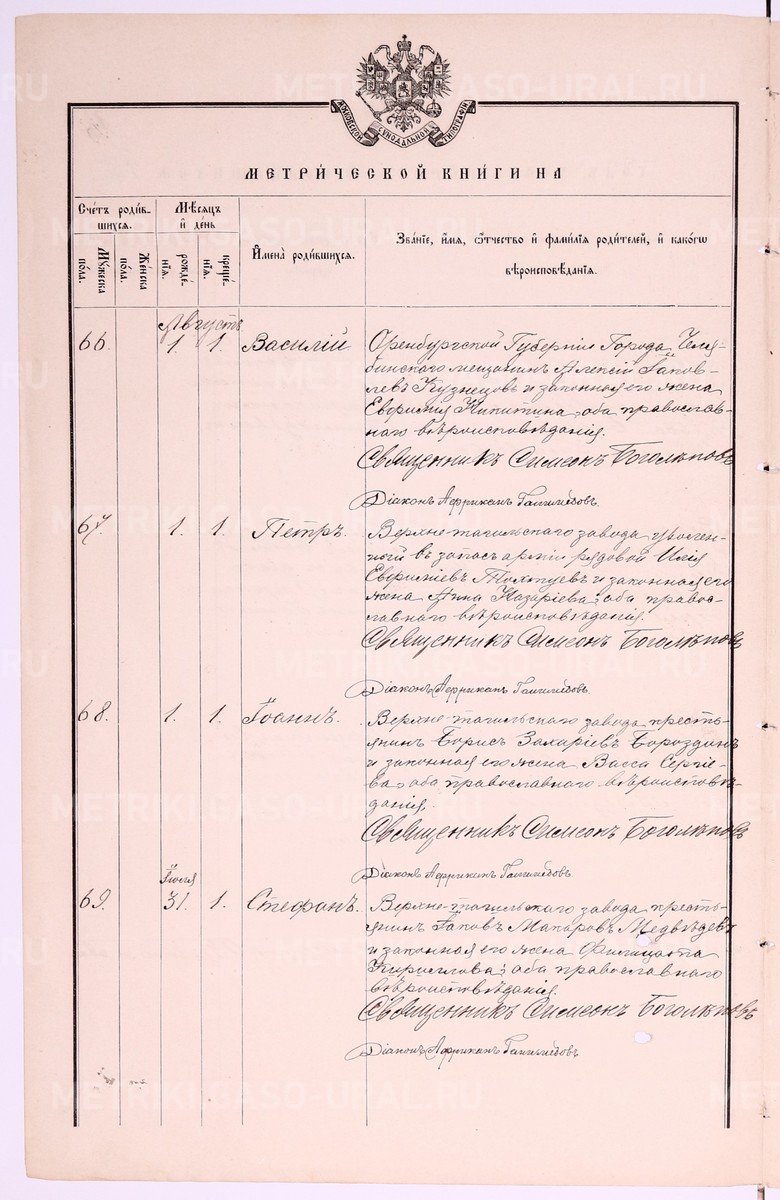 МОСКОВСКОЙ СѴНОДАЛЬНОЙ ТИПОГРАФІИ
МЕТРИ́ЧЕСКОЙ КНИ́ГИ НА
Сче́тъ роди́в-
шихся.
Мѣ́сяцъ
и҆ де́нь
И҆мена̀ роди́вшихся.
Зва́нїе, и҆́мя, ѻ҆́тчество и҆ фами́лїя роди́телей, и҆ како́гѡ
вѣроисповѣ́данїя.
Му́жеска
по́ла.
Же́нска
по́ла.
рожде́-
нїя.
креще́-
нїя.
Августъ
66. 1. 1. Василій
Оренбургской Губерніи Города Челя-
бинскаго мещанинъ Алексій Іаков-
левъ Кузнецовъ и законная его жена
Евфимія Никитина, оба православ-
наго вѣроисповѣданія.
Священникъ Симеонъ Боголѣповъ
Діаконъ Африканъ
67. 1. 1. Петръ.
Верхне-тагильскаго завода уволен-
ный въ запасъ арміи рядовой Илія
Евфиміевъ и законная его
жена Анна Назаріева, оба право-
славнаго вѣроисповѣданія.
Священникъ Симеонъ Боголѣповъ
Діаконъ Африканъ
68. 1. 1. Іоаннъ.
Верхне-тагильскаго завода кресть-
янинъ Борисъ Захаріевъ Бороздинъ
и законная его жена Васса Сергіе-
ва, оба православнаго вѣроисповѣ-
данія.
Священникъ Симеонъ Боголѣповъ
Діаконъ Африканъ
Іюля
69. 31. 1. Стефанъ.
Верхне-тагильскаго завода кресть-
янинъ Іаковъ Макаровъ Медвѣдевъ
и законная его жена Филицата
Кириллова; оба православнаго
вѣроисповѣданія.
Священникъ Симеонъ Боголѣповъ
Діаконъ Африканъ
METRIKI.GASO-URAL.RU